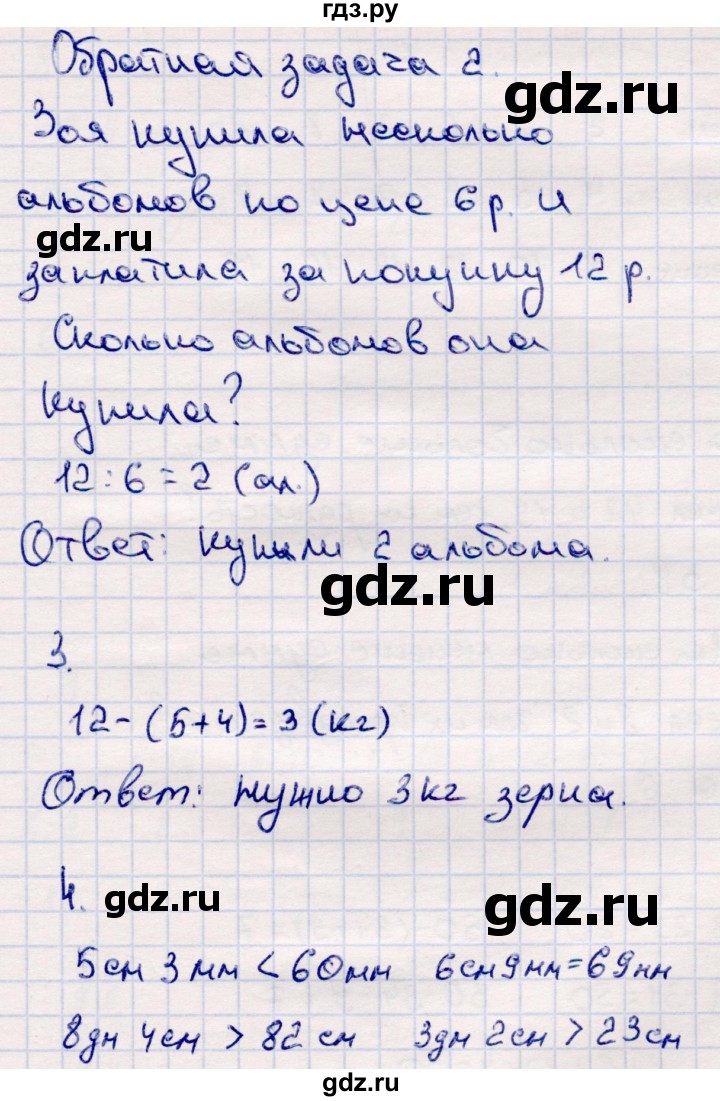 гдз.ру
Обратная задача 2.
gdz.ru
Зоя купила несколько
альбомов по цене 6 р. и
gdz.ru
заплатила за покупку 12 р.
Сколько альбомов она
купила?
12 : 6 = 2 (ал.)
Ответ: купили 2 альбома.
gdz.ru
3.
12 - (5+4) = 3 (кг)
Ответ: нужно 3 кг зерна.
4.
gdz.ru
gdz.ru
5 см 3 мм < 60 мм 6 см 9 мм = 69 мм
8 дм 4 см > 82 см 3 дм 2 см > 23 см
gdz.ru